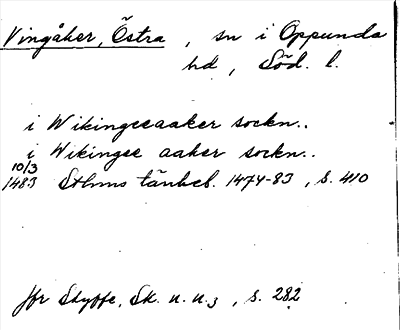 Vingåker, Östra, sn i Oppunda
hd, Söd. l.
i Wikingeeaaker sockn..
i Wikingee aaker sockn..
10/3
1483 Sthms tänkeb. 1474-83, s. 410
Jfr Styffe, Sk. u. u. 3, s. 282